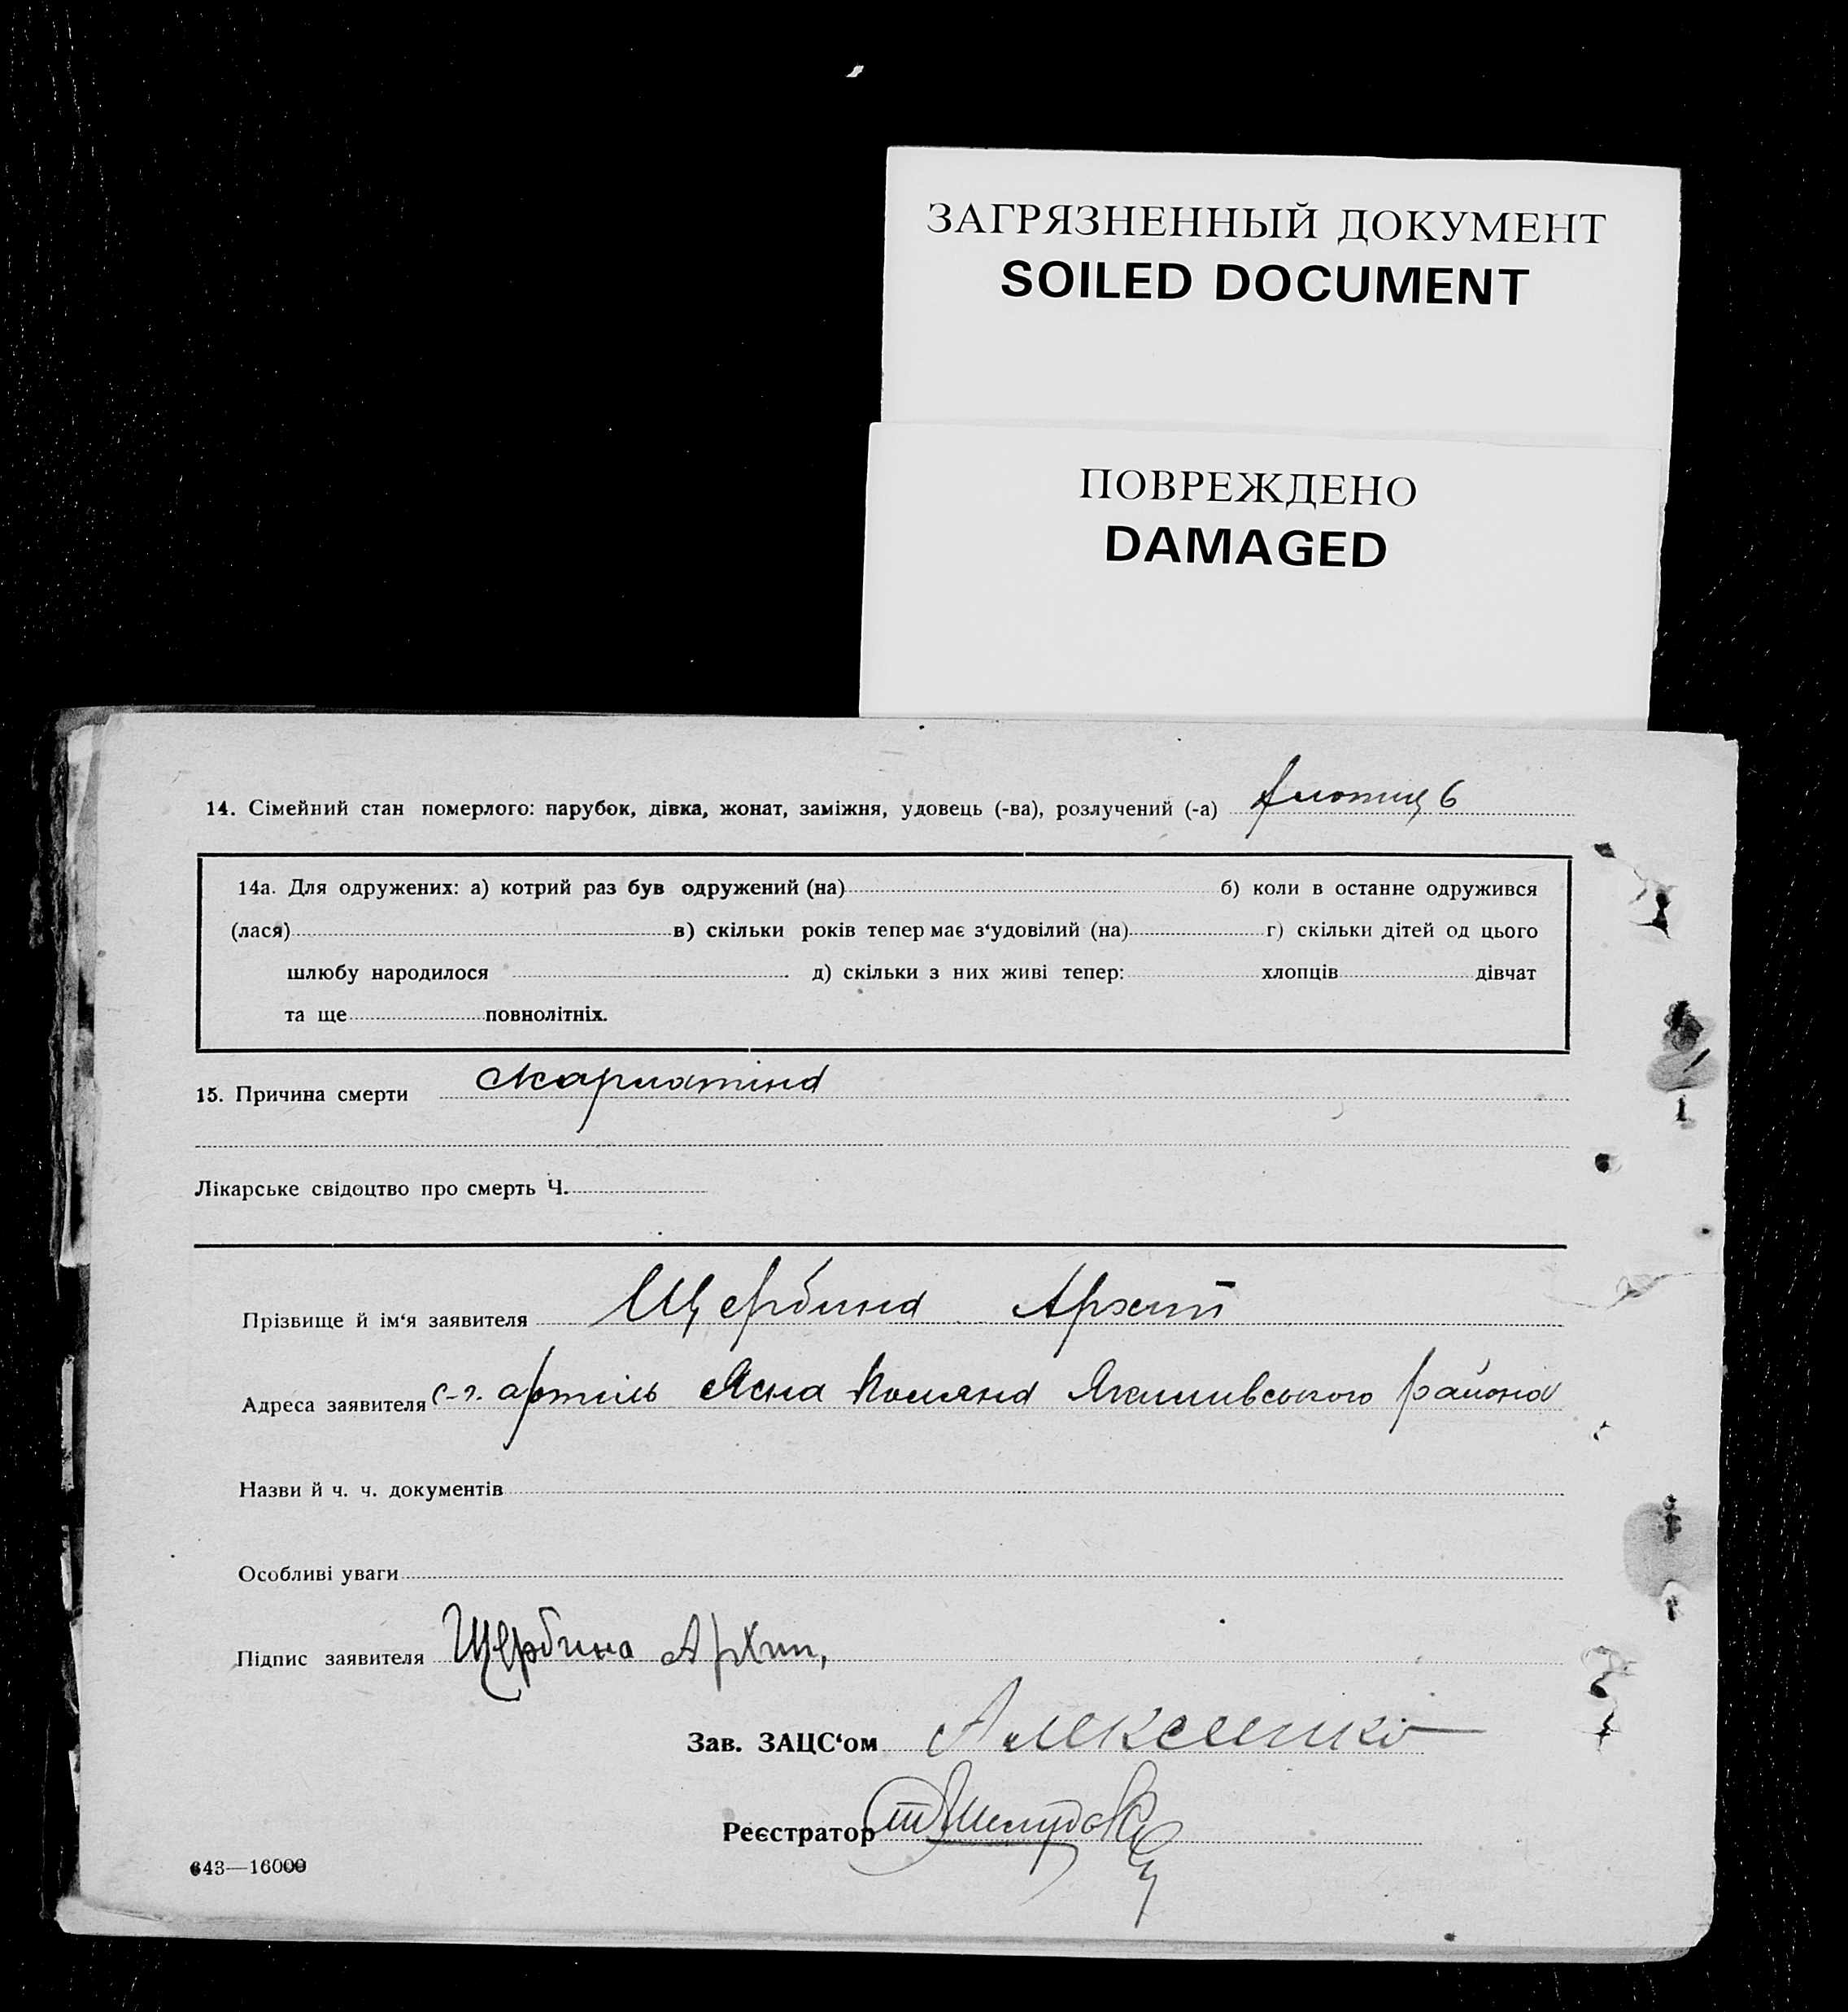 ЗАГРЯЗНЕННЫЙ ДОКУМЕНТ
SOILED DOCUMENT
ПОВРЕЖДЕНО
DAMAGED
14. Сімейний стан померлого: парубок, дівка, жонат, заміжня, удовець (-ва), розлучений (-а)
14а. Для одружених: а) котрий раз був одружений (на) б) коли в останне одружився
(лася) в) скільки років тепер має з‘удовілий (на) г) скільки дітей од цього
шлюбу народилося д) скільки з них живі тепер: хлопців дівчат
та ще повнолітніх.
15. Причина смерти скарлатіна
Лікарське свідоцтво про смерть Ч.
Прізвище й ім‘я заявителя Щербина Архип
Адреса заявителя с-г. артіль Ясна Поляна Якимівського района
Назви й ч. ч. документів
Особливі уваги
Підпис заявителя Щербина Архип,
Зав. ЗАЦС‘ом Алексенко
Реєстратор
643—16000